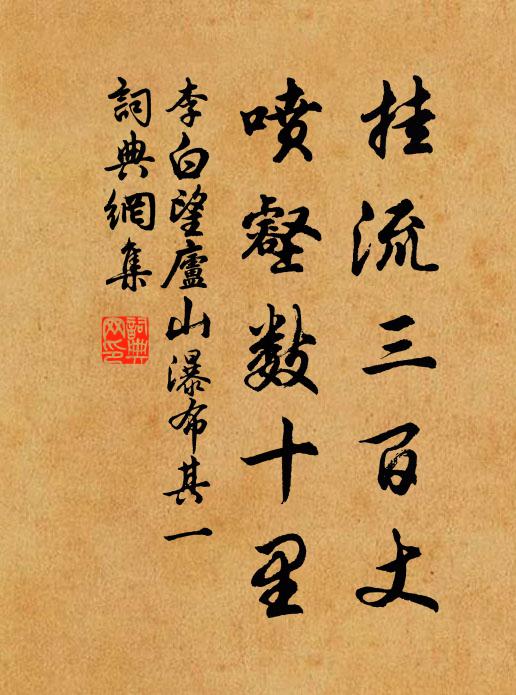 挂流三百丈
喷壑数十里
李白望廬山瀑布其一
詞典網集
詞典
网印